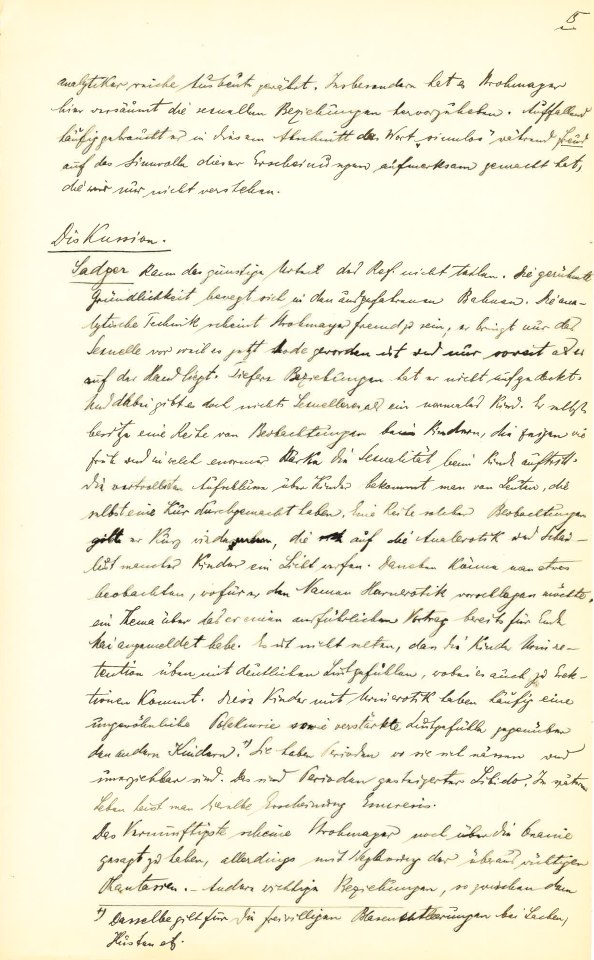 15
analytiker reiche Ausbeute gewährt. Insbesondere hat es Strohmayer
hier versäumt die sexuellen Beziehungen hervorzuheben. Auffallend
häufig gebraucht er in diesem Abschnitt das Wort „sinnlos" während Freud
auf das Sinnvolle dieser Erscheinungen aufmerksam gemacht hat,
die wir nur nicht verstehen.
Diskussion.
Sadger kann das günstige Urteil des Ref. nicht teilen. Die gerühmte
Gründlichkeit bewegt sich in den ausgefahrenen Bahnen. Die ana-
lytische Technik scheint Strohmayer fremd zu sein, er bringt nur das
Sexuelle vor weil es jetzt Mode geworden ist und nur soweit als es
auf der Hand liegt. Tiefere Beziehungen hat er nicht aufgedeckt.
Und dabei gibt es doch nichts Sexuelleres als ein normales Kind. Er selbst
besitze eine Reihe von Beobachtungen beim Kindern, die zeigen wie
früh und in welch enormer Stärke die Sexualität beim Kinde auftritt.
Die wertvollsten Aufschlüsse über Kinder bekommt man von Leuten, die
selbst eine Kur durchgemacht haben. Eine Reihe solcher Beobachtungen
gibt er kurz wieder, die auf die Analerotik und Schau-
lust mancher Kinder ein Licht werfen. Daneben könne man etwas
beobachten, wofür er den Namen Harnerotik vorschlagen möchte,
ein Thema über das er einen ausführlichen Vortrag bereits für Ende
Mai angemeldet habe. Es ist nicht selten, dass die Kinder Urinre-
tention üben mit deutlichen Lustgefühlen, wobei es auch zu Erek-
tionen kommt. Diese Kinder mit Urinerotik haben häufig eine
ungewöhnliche Polakurie sowie verstärkte Lustgefühle gegenüber
den andern Kindern.+) Sie haben Perioden wo sie sich nässen und
unerziehbar sind. Das sind Perioden gesteigerter Libido. Im spätern
Leben heisst man dieselbe Erscheinung Enuresis.
Das Vernünftigste scheine Strohmayer noch über die Onanie
gesagt zu haben, allerdings mit der überaus wichtigen
Phantasien. – Andere wichtige Beziehungen, so zwischen dem
+) Dasselbe gilt für die freiwilligen Blasenentleerungen bei Lachen,
Husten etc.